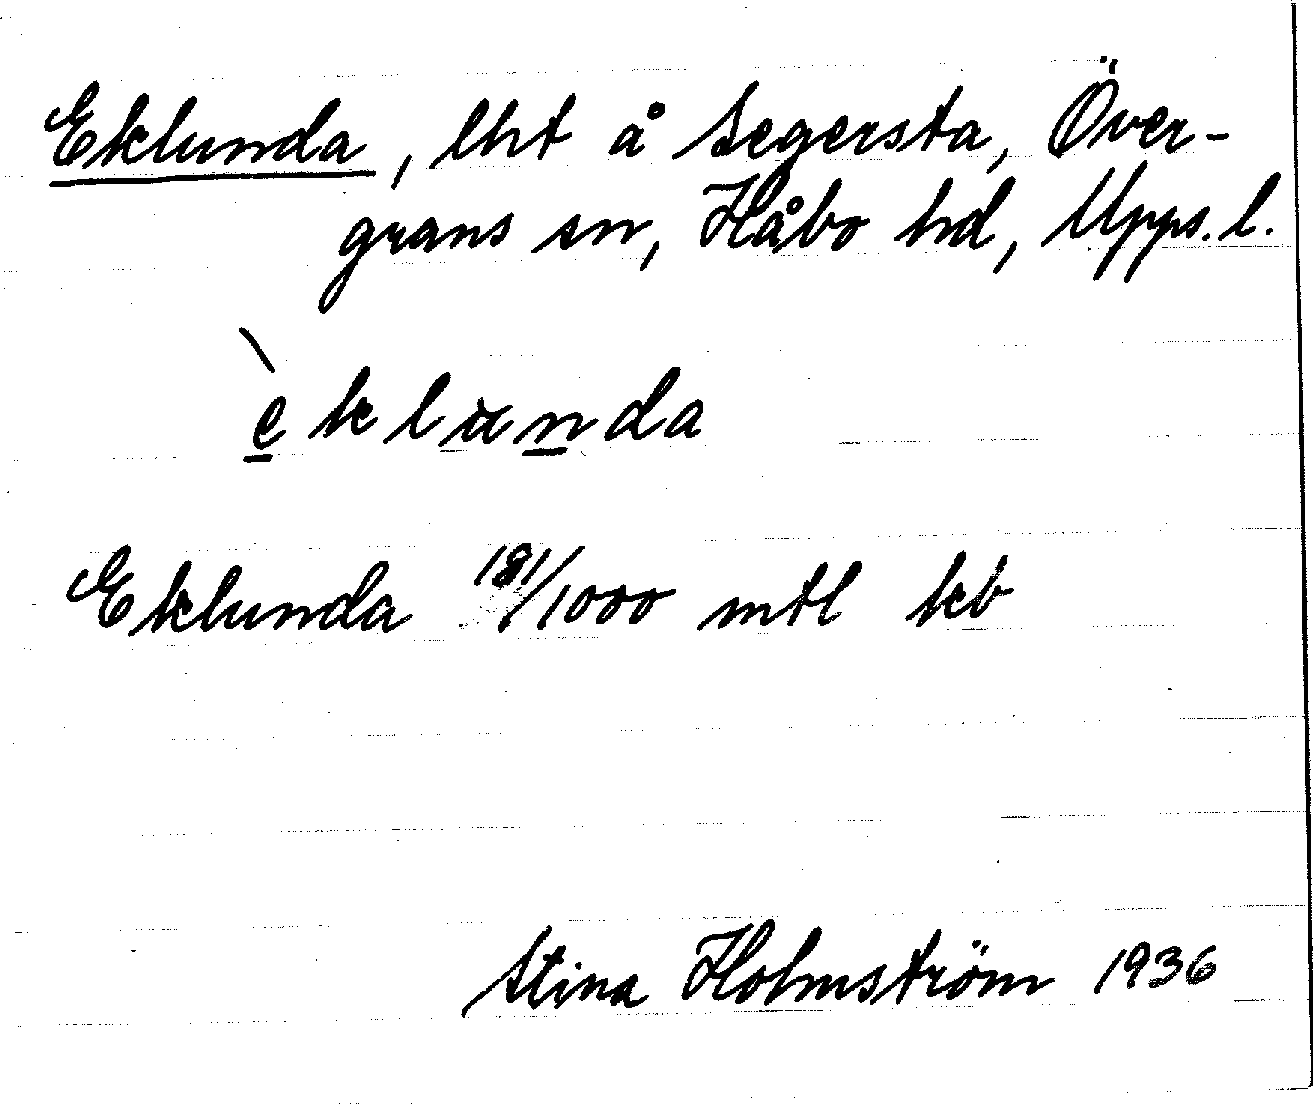 Eklunda, lht å Segersta, Över-
grans sn, Håbo hd, Upps. l.
èklùnda
Eklunda 181/1000 mtl kb
Stina Holmström 1936